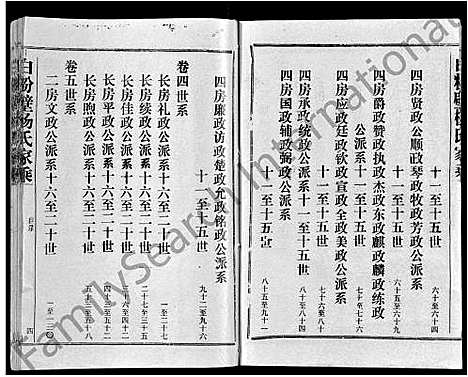 四房贤政公顺政琴政牧政芳政公派系
十一至十五世 六十至六十四
四房爵政赞政执政杰政东政麒政麟政练政
公派系 十一至十五世 六十五至
四房应政廷政钦政宣政全政美政公派系
十一至十五世
四房承政统政公派系 十一至十五世
四房国政辅政弼政公派系
十一至十五世 八十五至九十一
四房廉政访政楚政允政铭政公派系
十一至十五世 九十二至九十六
卷四世系
长房礼政公派系十六至二十世 一至二十七
长房续政公派系十六至二十世
长房佳政公派系十六至二十世 二十七至三十五
长房平政公派系十六至二十世
长房煦政公派系十六至二十世 五十三至
卷五世系
二房文政公派系十六至二十世
白粉壁杨氏家乘
目录
四
FamilySearch International